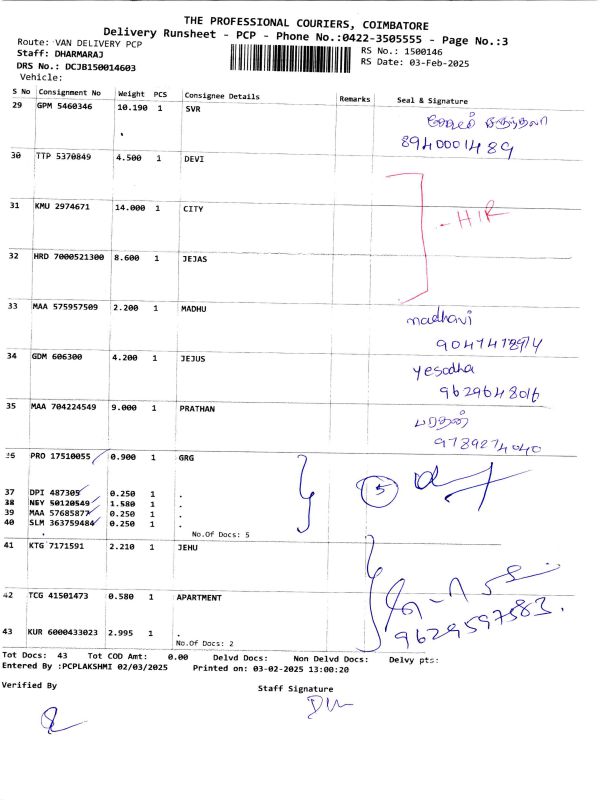 THE PROFESSIONAL COURIERS, COIMBATORE
Delivery Runsheet - PCP - Phone No.:0422-3505555 - Page No.:3
Route: VAN DELIVERY PCP
Staff: DHARMARAJ
RS No.: 1500146
DRS No.: DCJB150014603
RS Date: 03-Feb-2025
Vehicle:
S No Consignment No Weight PCS Consignee Details Remarks Seal & Signature
29 GPM 5460346 10.190 1 SVR
8940001489
30 TTP 5370849 4.500 1 DEVI
31 KMU 2974671 14.000 1 CITY
- HIR
32 HRD 7000521300 8.600 1 JEJAS
33 MAA 575957509 2.200 1 MADHU madhavi
34 GDM 606300 4.200 1 JEJUS yesodha
9629648016
35 MAA 704224549 9.000 1 PRATHAN பரதன்
9789274040
36 PRO 17510055 0.900 1 GRG
5
37 DPI 487305 0.250 1 .
38 NEY 50120549 1.580 1 .
39 MAA 57685877 0.250 1 .
40 SLM 363759484 0.250 1 .
No.Of Docs: 5
41 KTG 7171591 2.210 1 JEHU
42 TCG 41501473 0.580 1 APARTMENT
9629597583.
43 KUR 6000433023 2.995 1 .
No.Of Docs: 2
Tot Docs: 43 Tot COD Amt: 0.00 Delvd Docs: Non Delvd Docs: Delvy pts:
Entered By :PCPLAKSHMI 02/03/2025 Printed on: 03-02-2025 13:00:20
Verified By
Staff Signature